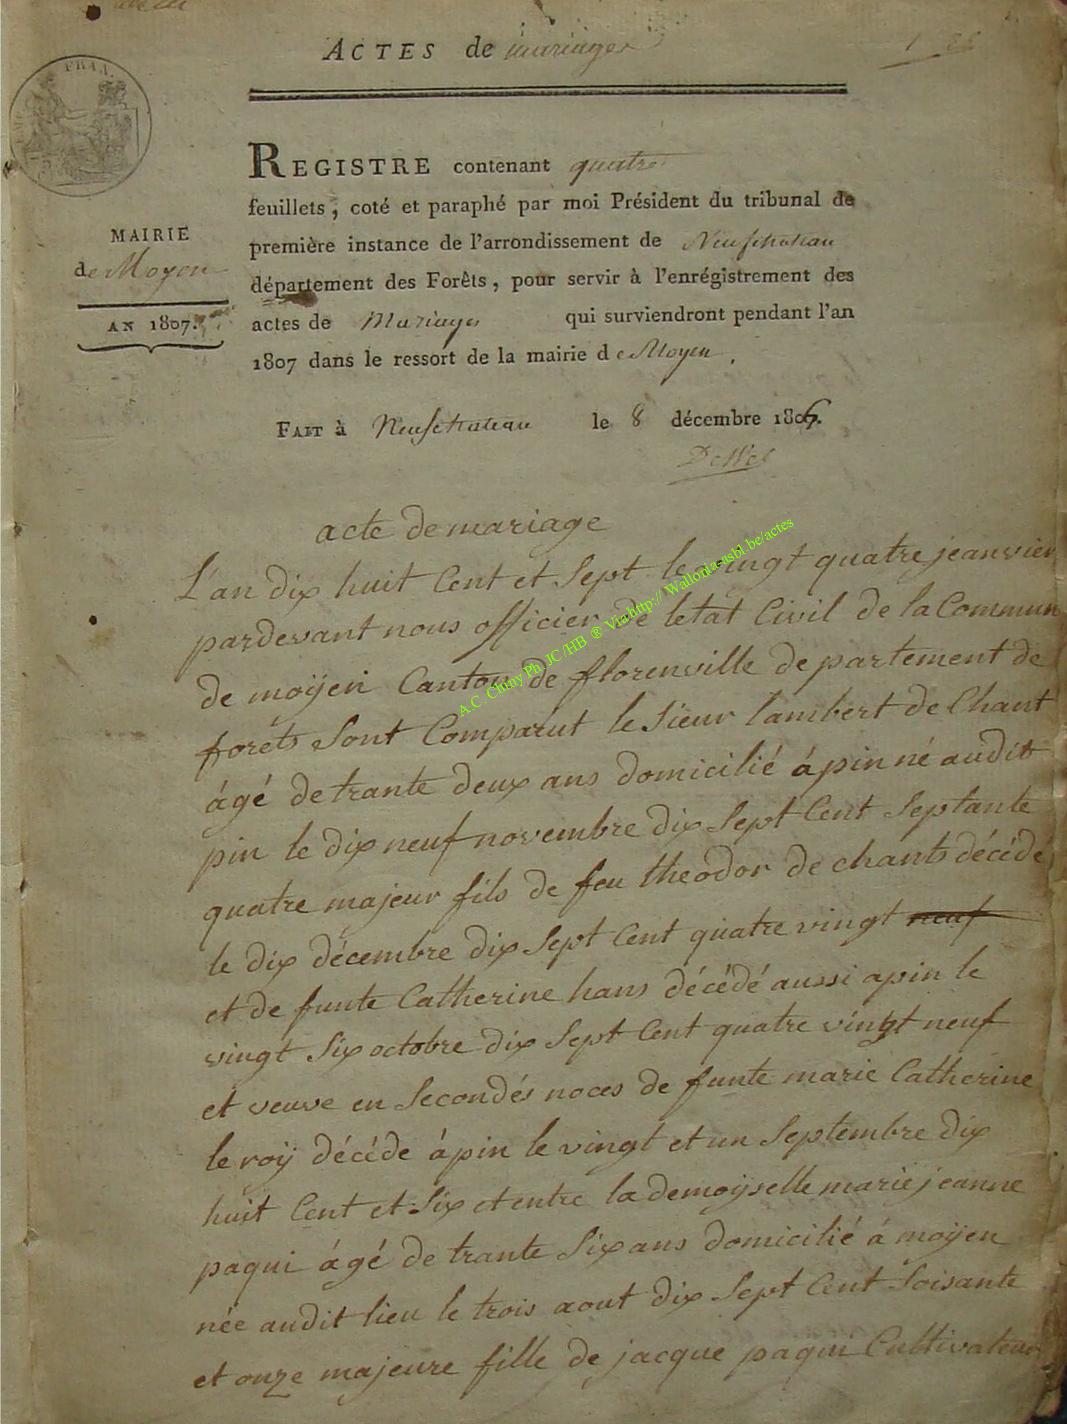 ACTES de mariages
EMP. FRAN.
REGISTRE contenant quatre
feuillets, coté et paraphé par moi Président du tribunal de
première instance de l'arrondissement de Neufchateau
département des Forêts, pour servir à l'enrégistrement des
actes de Mariages qui surviendront pendant l'an
1807 dans le ressort de la mairie de Moyen.
MAIRIE
de Moyen
AN 1807.
FAIT à Neufchateau le 8 décembre 1806.
acte de mariage
L'an dix huit Cent et Sept le vingt quatre jeanvier
pardevant nous officier de letat Civil de la Commun
de moÿen Canton de florenville departement de
forets Sont Comparut le Sieur lambert de Chant
ágé de trante deux ans domicilié á pin né audit
pin le dix neuf novembre dix Sept Cent Septante
quatre majeur fils de feu theodor de chants décédé
le dix décembre dix Sept Cent quatre vingt neuf
et de funte Catherine hans décédé aussi a pin le
vingt Six octobre dix Sept Cent quatre vingt neuf
et veuve en Secondés noces de funte marie Catherine
le roÿ décéde á pin le vingt et un Septembre dix
huit Cent et Six et entre la demoÿselle marie jeanne
paqui ágé de trante Six ans domicilié á moÿen
née audit lieu le trois aout dix Sept Cent Soisante
et onze majeure fille de jacque paqui Cultivateur
A.C. Chiny Ph JC/HB ® Via http:// Wallonia-asbl.be/actes